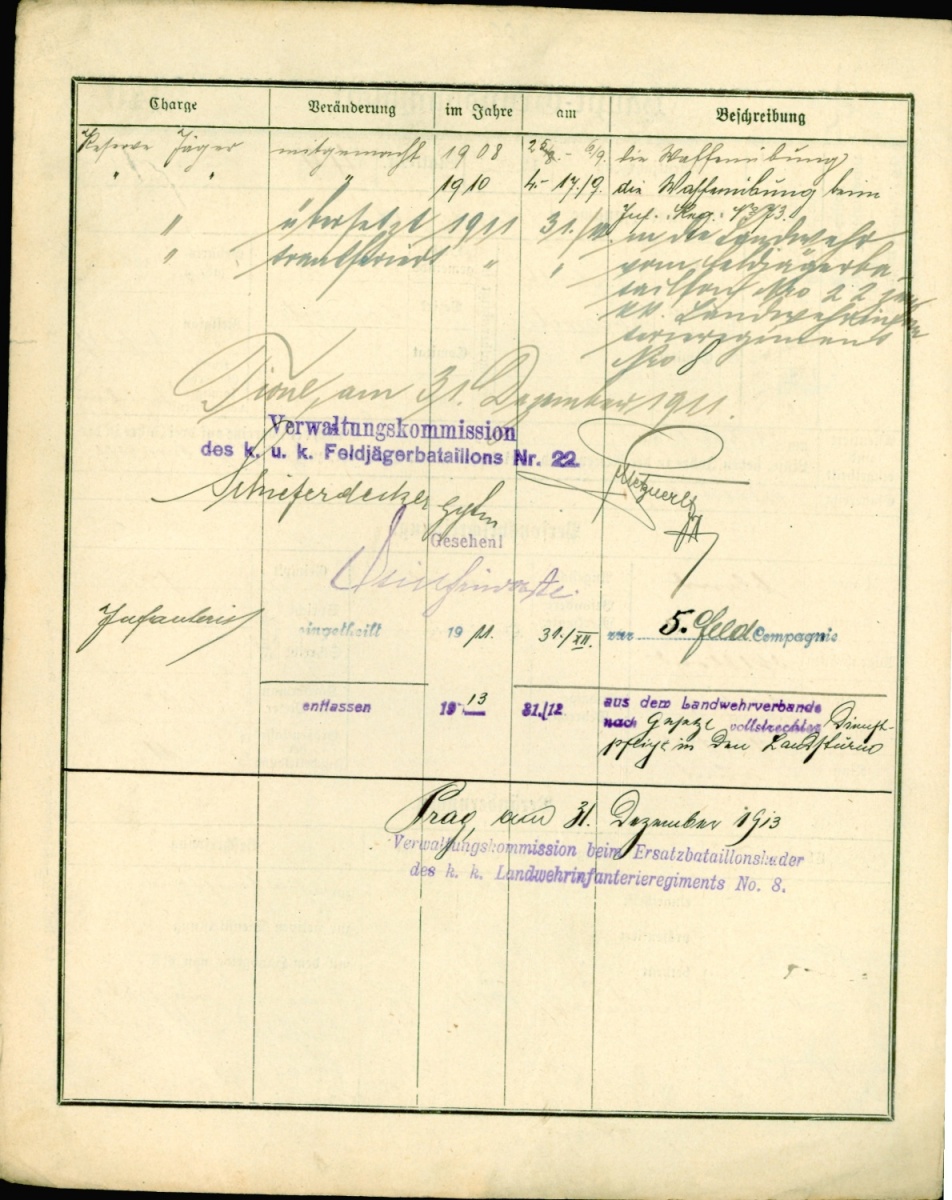 Charge Veränderung im Jahre am Beschreibung
Reserve Jäger mitgemacht 1908 26/8. - 6/9. die Waffenübung
" " " 1910 4.- 17./9. die Waffenübung beim
Inf. Reg. No 73.
" übersetzt 1911 31./12. in die Landwehr
" transferiert " " vom Feldjägerba-
taillon No 22 zum
kk. Landwehrinfan
terieregiment
No 8
am 31. Dezember 1911.
Verwaltungskommission
des k. u. k. Feldjägerbataillons Nr. 22.
Schieferdecker
Gesehen!
Infanterist eingetheilt 19 11. 31./XII. zur 5. Feld Compagnie
entlassen 1913 31./12 aus dem Landwehrverbande
nach Gesetz vollstreckter Dienst-
pflicht in den Landsturm
Prag, am 31. Dezember 1913
Verwaltungskommission beim Ersatzbataillonskader
des k. k. Landwehrinfanterieregiments No. 8.